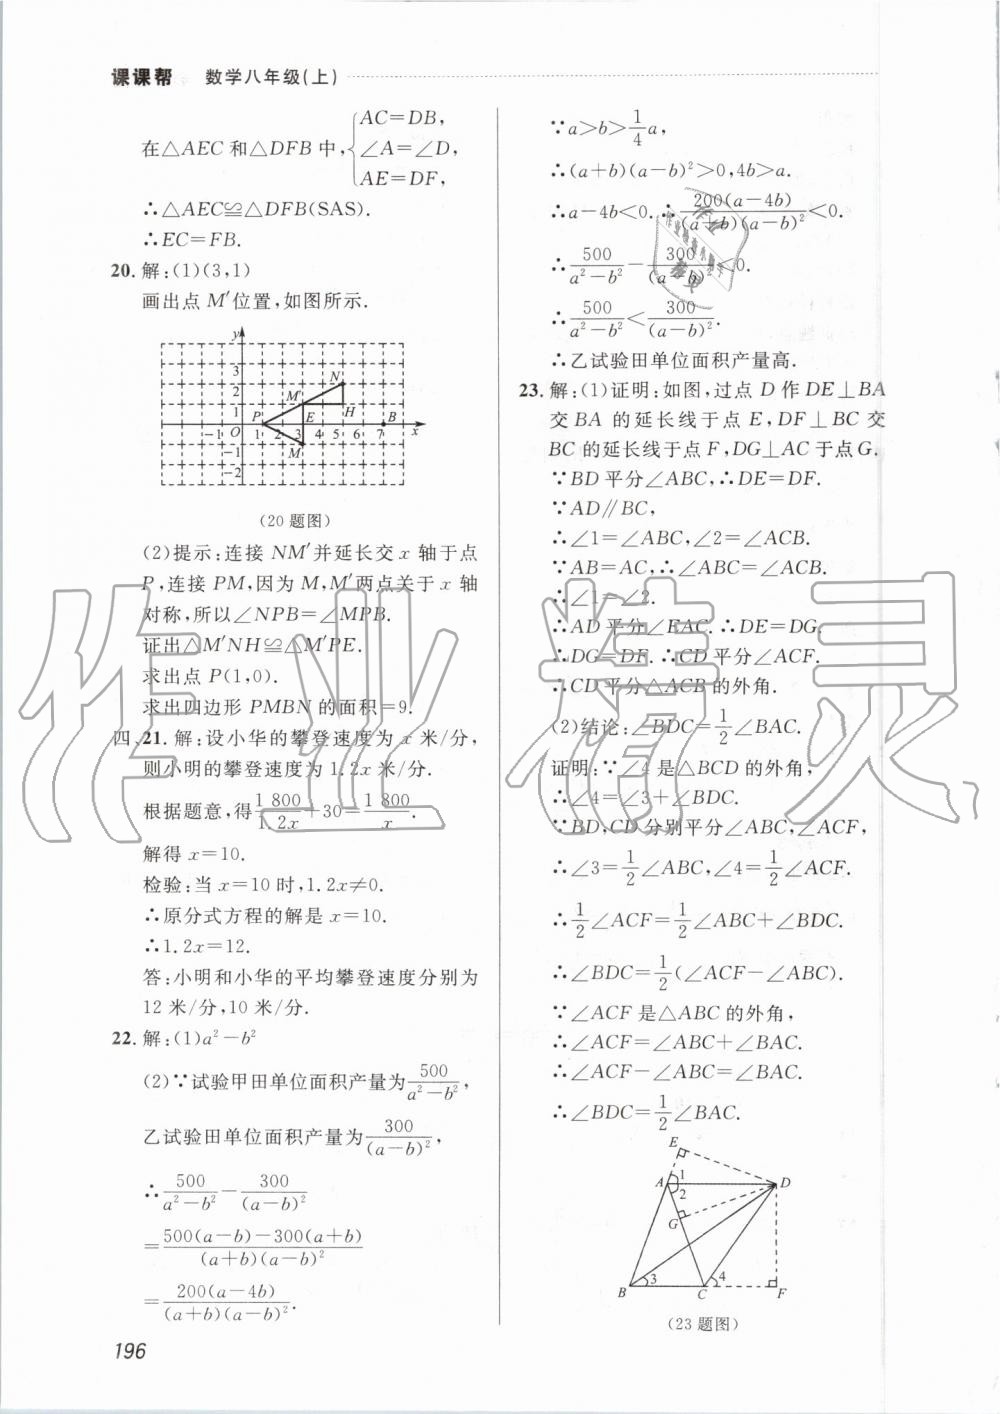 课课帮 数学八年级(上)
在△AEC和△DFB中,{AC=DB,
∠A=∠D,
AE=DF,
∴△AEC≌△DFB(SAS).
∴EC=FB.
20. 解:(1)(3,1)
画出点M′位置,如图所示.
y
3
2
1
-1 O 1 2 3 4 5 6 7 x
-1
-2
P M′ N E H B M
(20题图)
(2)提示:连接NM′并延长交x轴于点
P,连接PM,因为M,M′两点关于x轴
对称,所以∠NPB=∠MPB.
证出△M′NH≌△M′PE.
求出点P(1,0).
求出四边形PMBN的面积=9.
四、21. 解:设小华的攀登速度为x米/分,
则小明的攀登速度为1.2x米/分.
根据题意,得1 800/1.2x+30=1 800/x.
解得x=10.
检验:当x=10时,1.2x≠0.
∴原分式方程的解是x=10.
∴1.2x=12.
答:小明和小华的平均攀登速度分别为
12米/分,10米/分.
22. 解:(1)a²-b²
(2)∵试验甲田单位面积产量为500/(a²-b²),
乙试验田单位面积产量为300/(a-b)²,
∴500/(a²-b²)-300/(a-b)²
=[500(a-b)-300(a+b)]/[(a+b)(a-b)²]
=200(a-4b)/[(a+b)(a-b)²].
196
∵a>b>1/4a,
∴(a+b)(a-b)²>0,4b>a.
∴a-4b<0.∴200(a-4b)/[(a+b)(a-b)²]<0.
∴500/(a²-b²)-300/(a-b)²<0.
∴500/(a²-b²)<300/(a-b)².
∴乙试验田单位面积产量高.
23. 解:(1)证明:如图,过点D作DE⊥BA
交BA的延长线于点E,DF⊥BC交
BC的延长线于点F,DG⊥AC于点G.
∵BD平分∠ABC,∴DE=DF.
∵AD∥BC,
∴∠1=∠ABC,∠2=∠ACB.
∵AB=AC,∴∠ABC=∠ACB.
∴∠1=∠2.
∴AD平分∠EAC.∴DE=DG.
∴DG=DF.∴CD平分∠ACF.
∴CD平分△ACB的外角.
(2)结论:∠BDC=1/2∠BAC.
证明:∵∠4是△BCD的外角,
∴∠4=∠3+∠BDC.
∵BD,CD分别平分∠ABC,∠ACF,
∴∠3=1/2∠ABC,∠4=1/2∠ACF.
∴1/2∠ACF=1/2∠ABC+∠BDC.
∴∠BDC=1/2(∠ACF-∠ABC).
∵∠ACF是△ABC的外角,
∴∠ACF=∠ABC+∠BAC.
∴∠ACF-∠ABC=∠BAC.
∴∠BDC=1/2∠BAC.
E
A 1 2 D
G
B 3 C 4 F
(23题图)
作业精灵